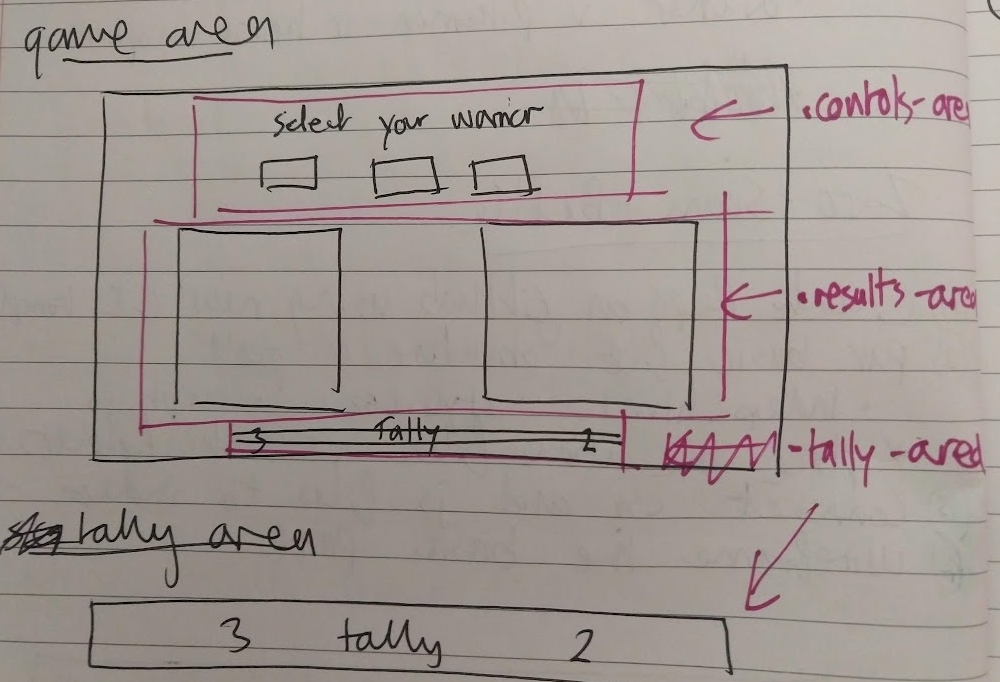 game area
select your warrior
.controls-area
.results-area
3 Tally 2
-tally-area
tally area
3 tally 2